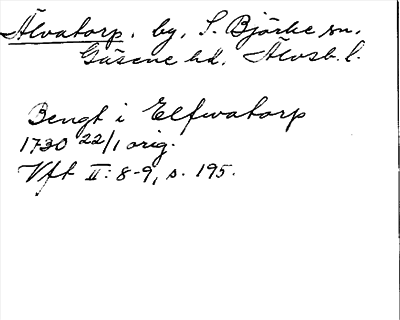 Älvatorp, by, S. Björke sn,
Gäsene hd, Älvsb. l.
Bengt i Elfwatorp
1730 22/1 orig.
Vft II: 8-9, s. 195.